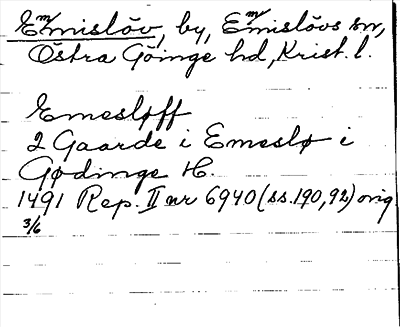 Emmislöv, by, Emmislövs sn,
Östra Göinge hd, Krist. l.
Emesløff
2 Gaarde i Emesslø i
Gødinge H.
1491 Rep. II nr 6940 (ss. 190, 92) orig.
3/6